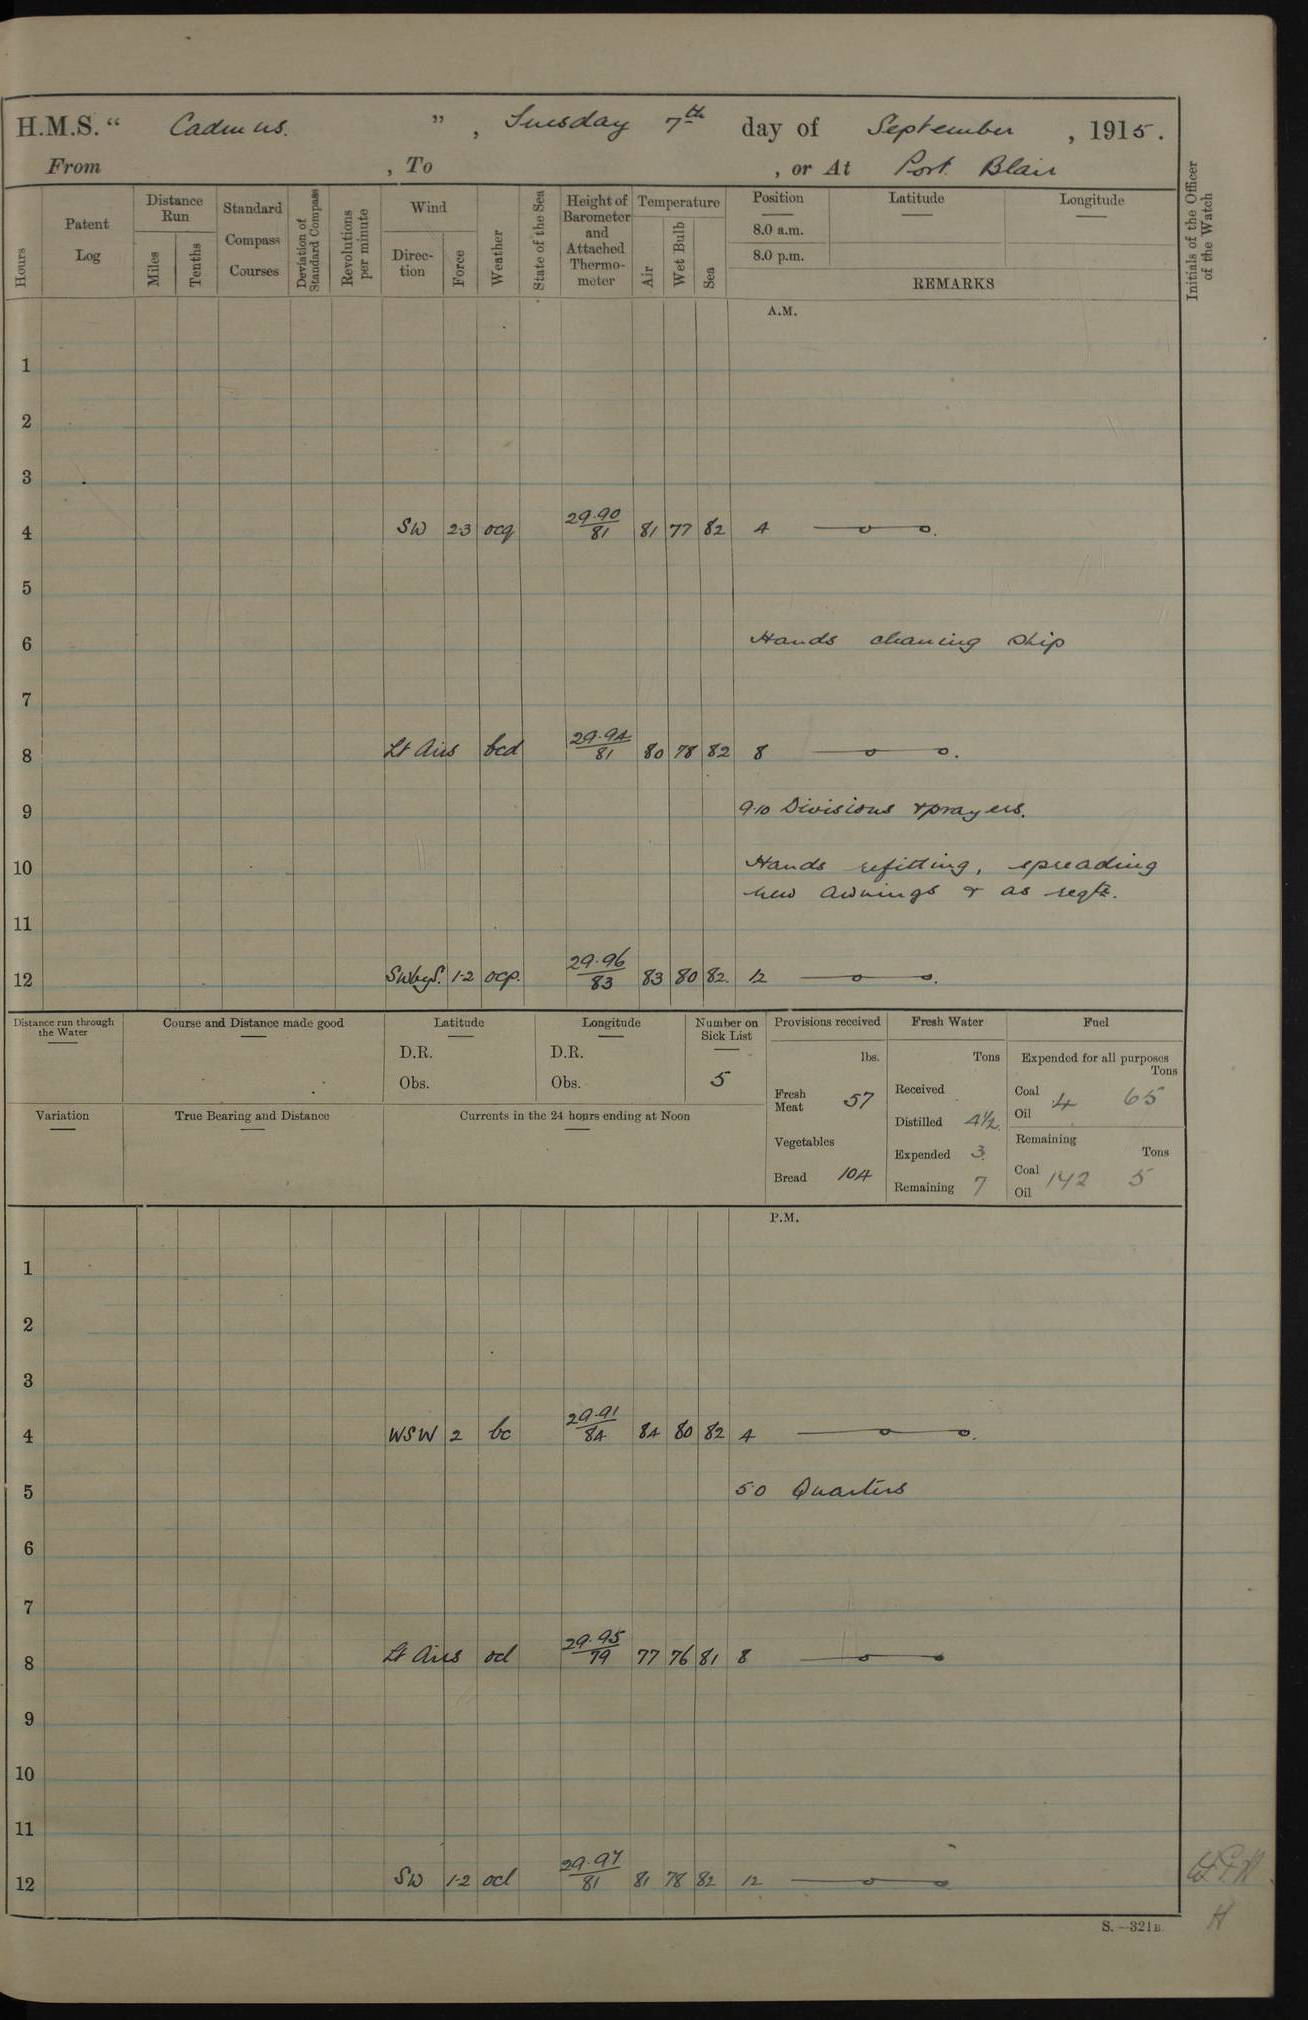 H.M.S. “ Cadmus. ” , Tuesday 7th day of September , 1915.
From , To , or At Port Blair
Hours
Patent Log
Distance Run
Miles
Tenths
Standard Compass Courses
Deviation of Standard Compass
Revolutions per minute
Wind
Direction
Force
Weather
State of the Sea
Height of Barometer and Attached Thermometer
Temperature
Air
Wet Bulb
Sea
Position
8.0 a.m.
8.0 p.m.
Latitude
Longitude
REMARKS
Initials of the Officer of the Watch
A.M.
1
2
3
4 SW 2-3 ocq 29.90/81 81 77 82 4
5
6 Hands cleaning ship
7
8 Lt Airs bcd 29.94/81 80 78 82 8
9 9.10 Divisions & prayers.
10 Hands refitting, spreading
new awnings & as reqte.
11
12 SWbyS. 1-2 ocp. 29.96/83 83 80 82. 12
Distance run through the Water
Course and Distance made good
Latitude
D.R.
Obs.
Longitude
D.R.
Obs.
Number on Sick List
5
Provisions received
lbs.
Fresh Meat 57
Vegetables
Bread 104
Fresh Water
Tons
Received
Distilled 4½
Expended 3
Remaining 7
Fuel
Expended for all purposes
Tons
Coal 4 65
Oil
Remaining
Tons
Coal 142 5
Oil
Variation
True Bearing and Distance
Currents in the 24 hours ending at Noon
P.M.
1
2
3
4 WSW 2 bc 29.91/84 84 80 82 4
5 5.0 Quarters
6
7
8 Lt Airs od 29.95/79 77 76 81 8
9
10
11
12 SW 1-2 ocl 29.97/81 81 78 82 12
S.—321B.